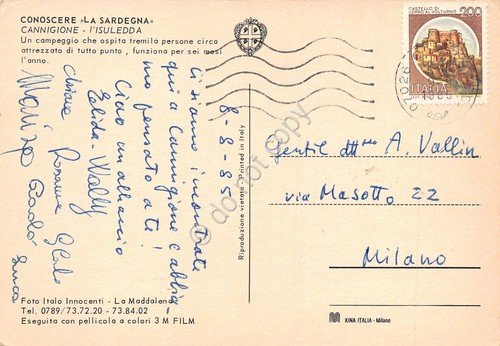 CONOSCERE «LA SARDEGNA»
CANNIGIONE - l'ISULEDDA
Un campeggio che ospita tremila persone circa
attrezzato di tutto punto, funziona per sei mesi
l'anno.
8-8-85
Ci siamo incontrate
qui a Cannigione e abbia-
mo pensato a te!
Ciao un abbraccio
Elida - Wally
Chiara Rosanna
Marisa Paola
Foto Italo Innocenti - La Maddalena
Tel. 0789/73.72.20 - 73.84.02
Eseguita con pellicola a colori 3 M FILM
Riproduzione vietata - Printed in Italy
CASTELLO DI
CERRO AL VOLTURNO
200
ITALIA
07026
Gentil A. Vallin
via Masotto 22
Milano
KINA ITALIA - Milano
do not copy